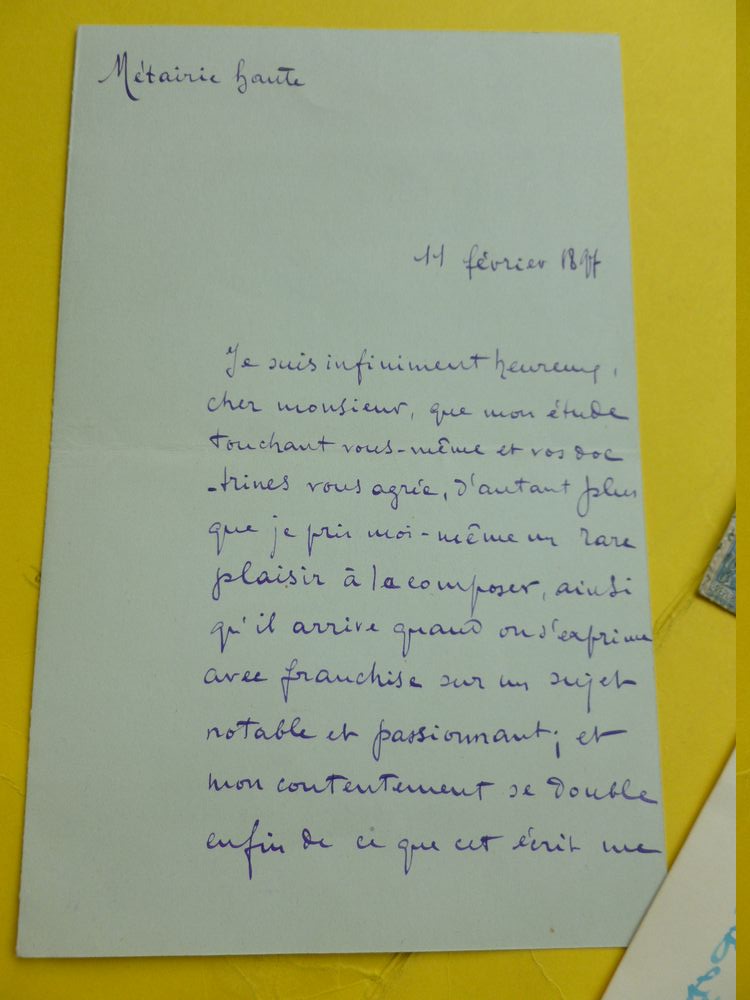 Métairie haute
11 février 1897
Je suis infiniment heureux,
cher monsieur, que mon étude
touchant vous-même et vos doc
-trines vous agrée, d'autant plus
que je pris moi-même un rare
plaisir à la composer, ainsi
qu'il arrive quand on s'exprime
avec franchise sur un sujet
notable et passionnant; et
mon contentement se double
enfin de ce que cet écrit me